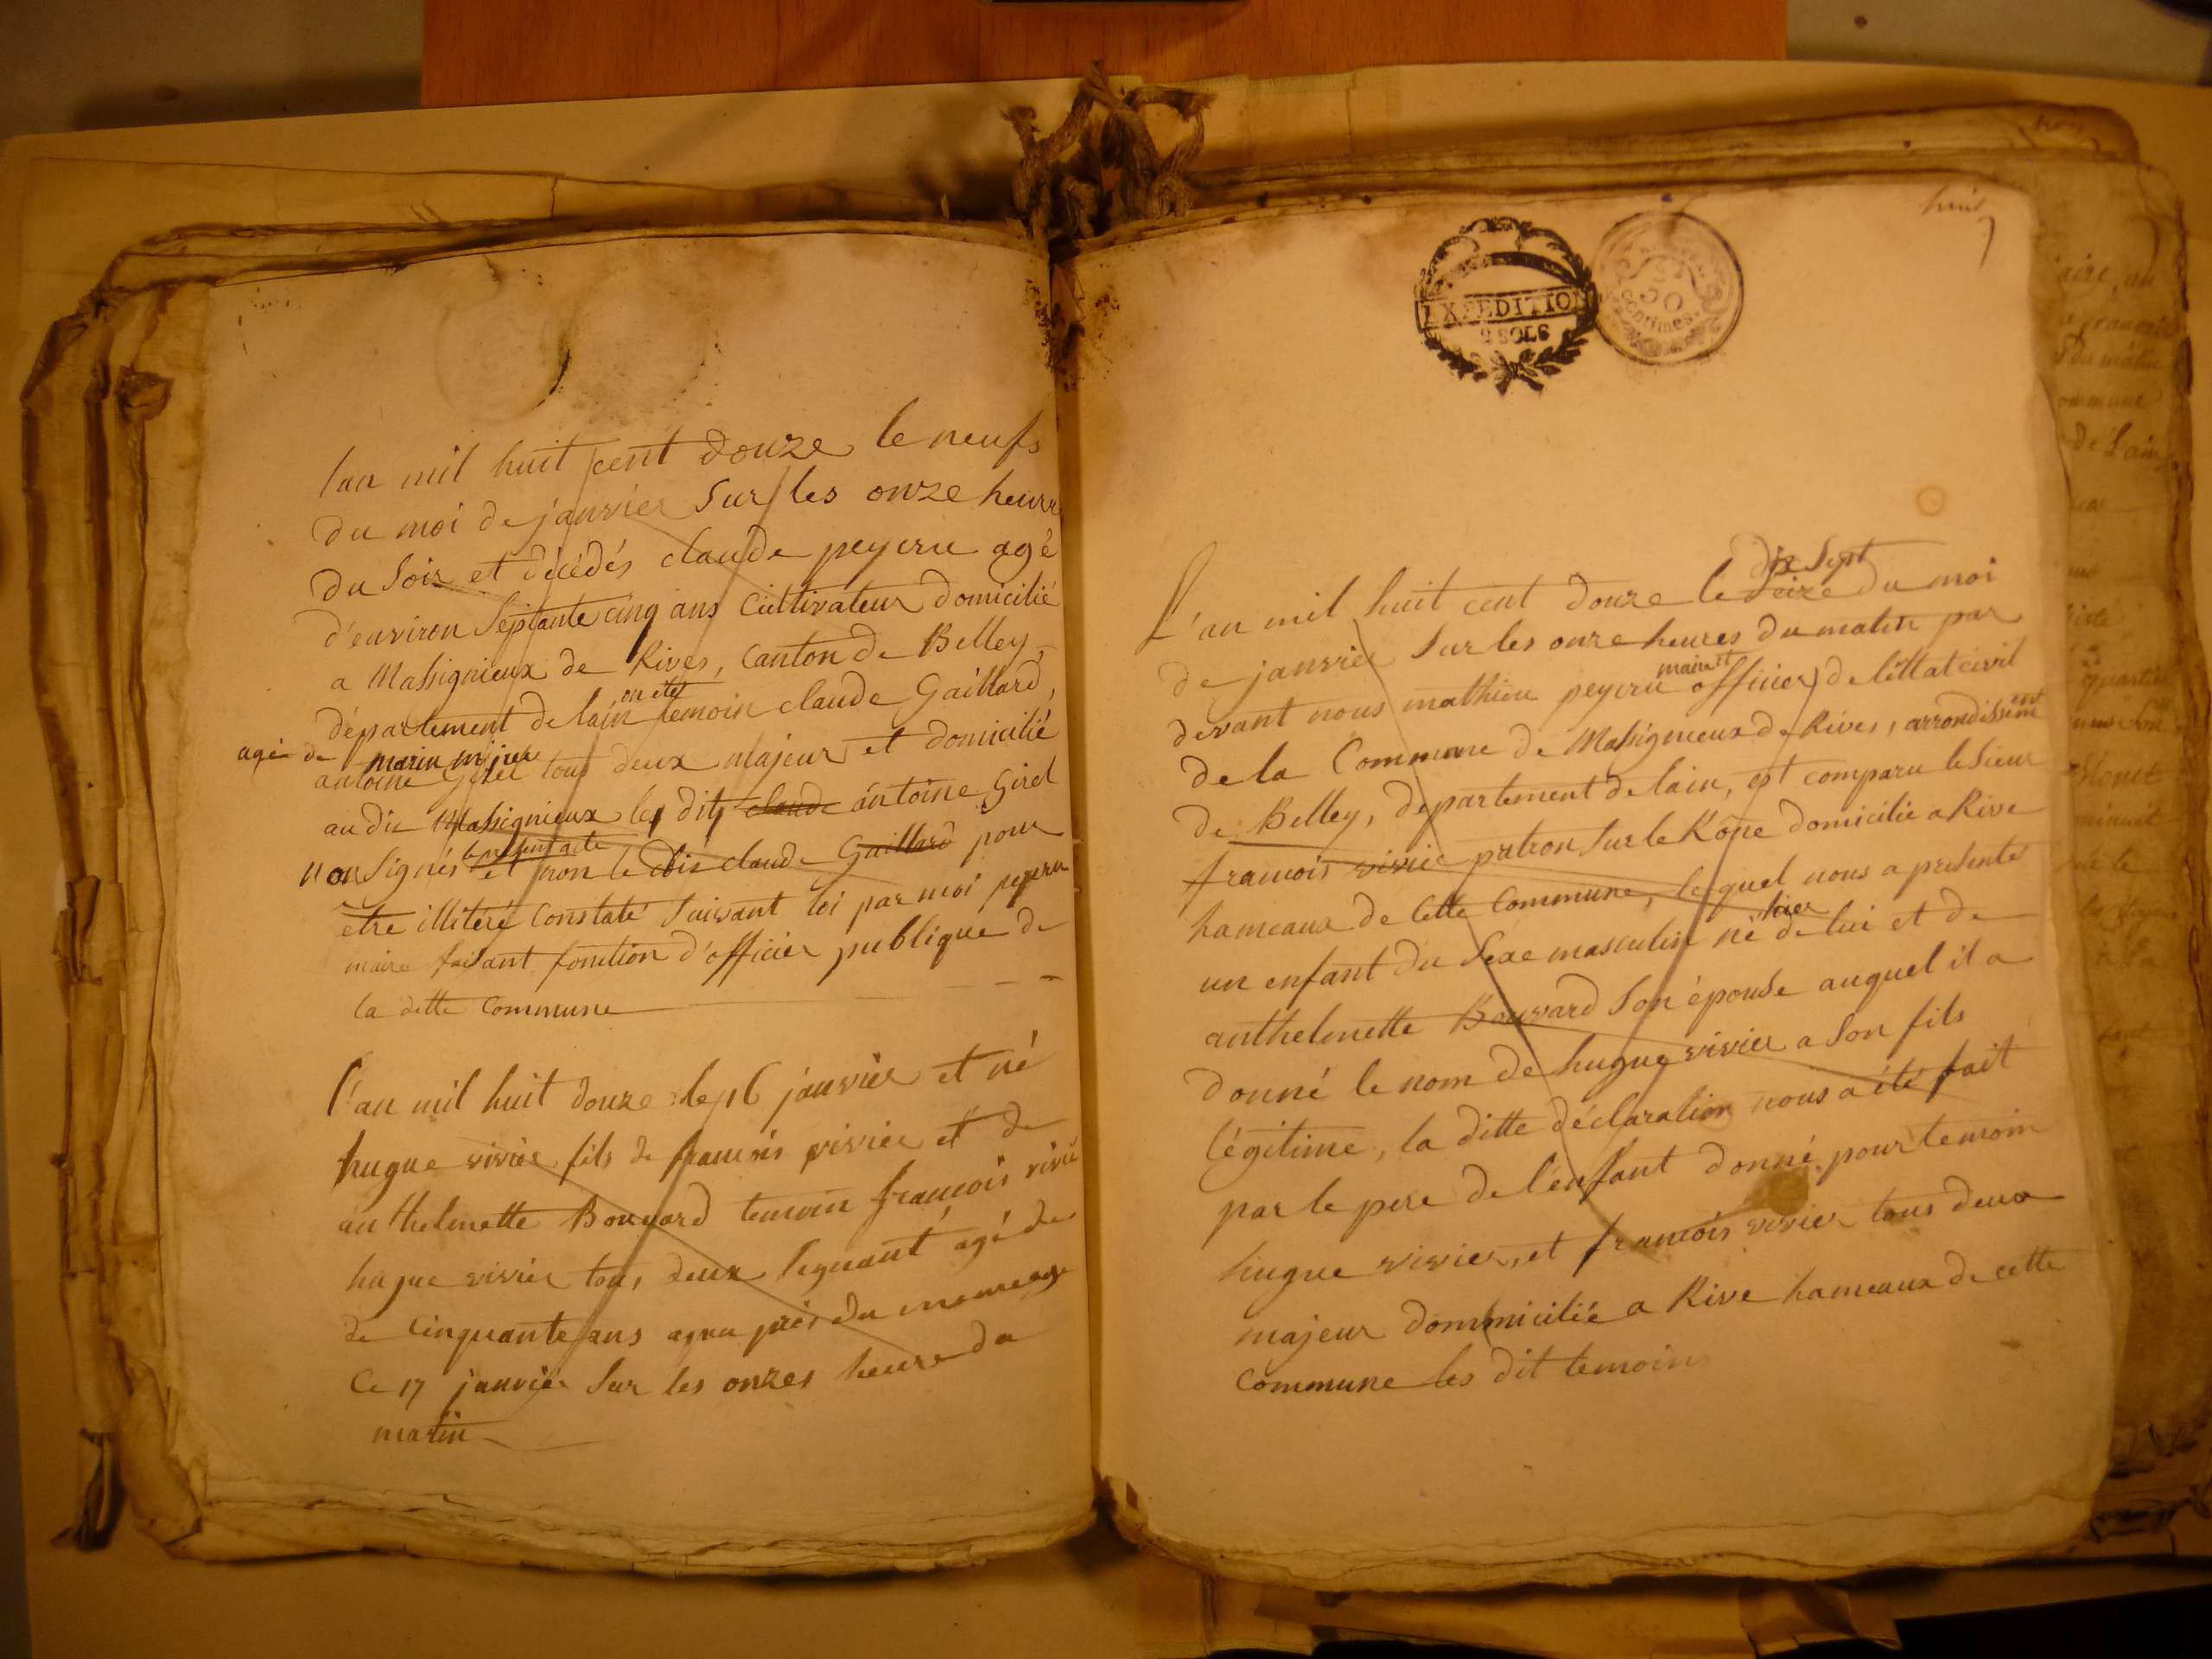 lan mil huit cent douze le neufs
du moi de janvier sur les onze heure
du soir et décédés claude peyeru agé
d'environ septante cinq ans cultivateur domicilié
a Massignieux de Rives, canton de Belley,
département de lain on été temoin claude Gaillard,
agé de marin mijeur
antoine Girel tous deux majeur et domicilié
au dit Massignieux les dits claude antoine Girel
non signés le présent acte et non le dit claude Gaillard pour
etre illiteré constaté suivant loi par moi peyeru
maire faisant fonction d'officier publique de
la ditte commune
l'an mil huit douze le 16 janvier et né
hugue vivier fils de francois vivier et de
anthelmette Bouvard temoin francois vivié
hugue vivier tous deux agé de
de cinquante ans apeu près du meme age
Ce 17 janvier sur les onzes heure du
matin
huit
7
EXPEDITION
50
centimes
L'an mil huit cent douze le seize dix sept du moi
de janvier sur les onze heures du matin par
devant nous mathieu peyeru maire et officier de l'ettat civil
de la Commune de Massignieux de Rives, arrondissement
de Belley, departement de lain, est comparu le sieur
francois vivier patron sur le Rône domicilie a Rive
hameaux de cette commune, lequel nous a presenté
un enfant du sexe masculin né hier de lui et de
anthelmette Bouvard son épouse auquel il a
donné le nom de hugue vivier a son fils
légitime, la ditte déclaration nous a été fait
par le pere de l'enfant donné pour temoin
hugue vivier, et francois vivier tous deux
majeur dommicilié a Rive hameaux de cette
commune les dit temoins